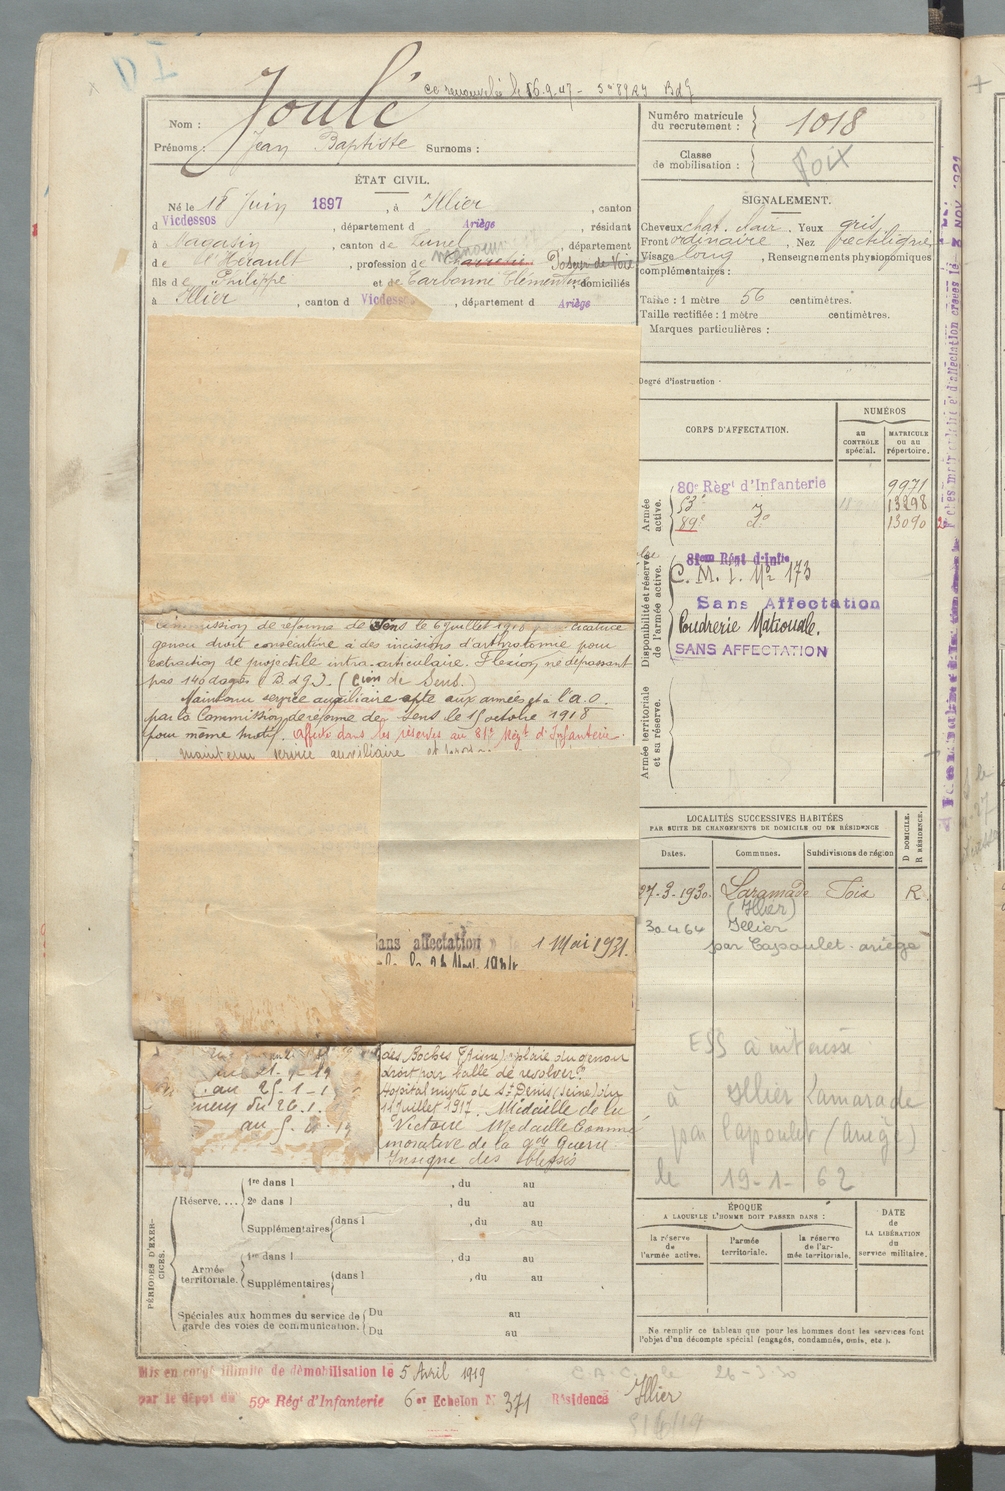 Joulé
Nom :
Prénoms : Jean Baptiste Surnoms :
Numéro matricule du recrutement : 1018
Classe de mobilisation :
Foix
ÉTAT CIVIL.
Né le 18 Juin 1897, à Illier, canton
d Vicdessos, département d Ariège, résidant
à Magasin, canton de Lunel, département
de l'Hérault, profession de Poseur de Voie
fils de Philippe et de Carbonne Clémentine, domiciliés
à Illier, canton d Vicdessos, département d Ariège
SIGNALEMENT.
Cheveux chat. clair. Yeux gris
Front ordinaire, Nez rectiligne
Visage long, Renseignements physionomiques
complémentaires :
Taille : 1 mètre 56 centimètres.
Taille rectifiée : 1 mètre centimètres.
Marques particulières :
Degré d'instruction
CORPS D'AFFECTATION.
NUMÉROS
au CONTRÔLE spécial.
MATRICULE ou au répertoire.
Armée active.
80e Régt d'Infanterie 9971
53e 13298
89e do 13090
Disponibilité et réserve de l'armée active.
81eme Régt d'Infie
C. M. I. No 173
Sans Affectation
Poudrerie Nationale.
SANS AFFECTATION
Armée territoriale et sa réserve.
Commission de réforme de Sens le 6 juillet 1918
genou droit consécutive à des incisions d'arthrotomie pour
extraction de projectile intra-articulaire. Flexion ne dépassant
pas 140 degrés (B.d.g.). (Cion de Sens.)
Maintenu service auxiliaire apte aux armées et à l'a.o.
par la Commission de réforme de Sens le 15 octobre 1918
pour même motif. affecté dans les réserves au 81e Régt d'Infanterie.
maintenu service auxiliaire et
LOCALITÉS SUCCESSIVES HABITÉES
PAR SUITE DE CHANGEMENTS DE DOMICILE OU DE RÉSIDENCE
Dates. Communes. Subdivisions de région
D DOMICILE. R RÉSIDENCE.
27-3-1930. Laramade Foix R
(Illier)
30.4.64 Illier
par Capoulet-ariège
Sans affectation 1 Mai 1931.
des Boches (Aisne) plaie du genou
droit par balle de revolver.
Hopital mixte de St Denis (Seine) du
11 Juillet 1917. Médaille de la
Victoire Médaille Commé
morative de la gde Guerre
Insigne des blessés
au 25-1-1
du 26.1.
ESS à intéressé
à Illier Lamarade
par Capoulet (Ariège)
le 19-1-62
PÉRIODES D'EXERCICES.
Réserve....
1re dans l , du au
2e dans l , du au
Supplémentaires dans l , du au
Armée territoriale.
1re dans l , du au
Supplémentaires dans l , du au
Spéciales aux hommes du service de garde des voies de communication.
Du au
Du au
ÉPOQUE
A LAQUELLE L'HOMME DOIT PASSER DANS :
la réserve de l'armée active.
l'armée territoriale.
la réserve de l'armée territoriale.
DATE de LA LIBÉRATION du service militaire.
Ne remplir ce tableau que pour les hommes dont les services font
l'objet d'un décompte spécial (engagés, condamnés, omis, etc.).
Mis en congé illimité de démobilisation le 5 Avril 1919
par le dépôt du 59e Régt d'Infanterie 6er Echelon N 371 Résidence Illier
26-3-30